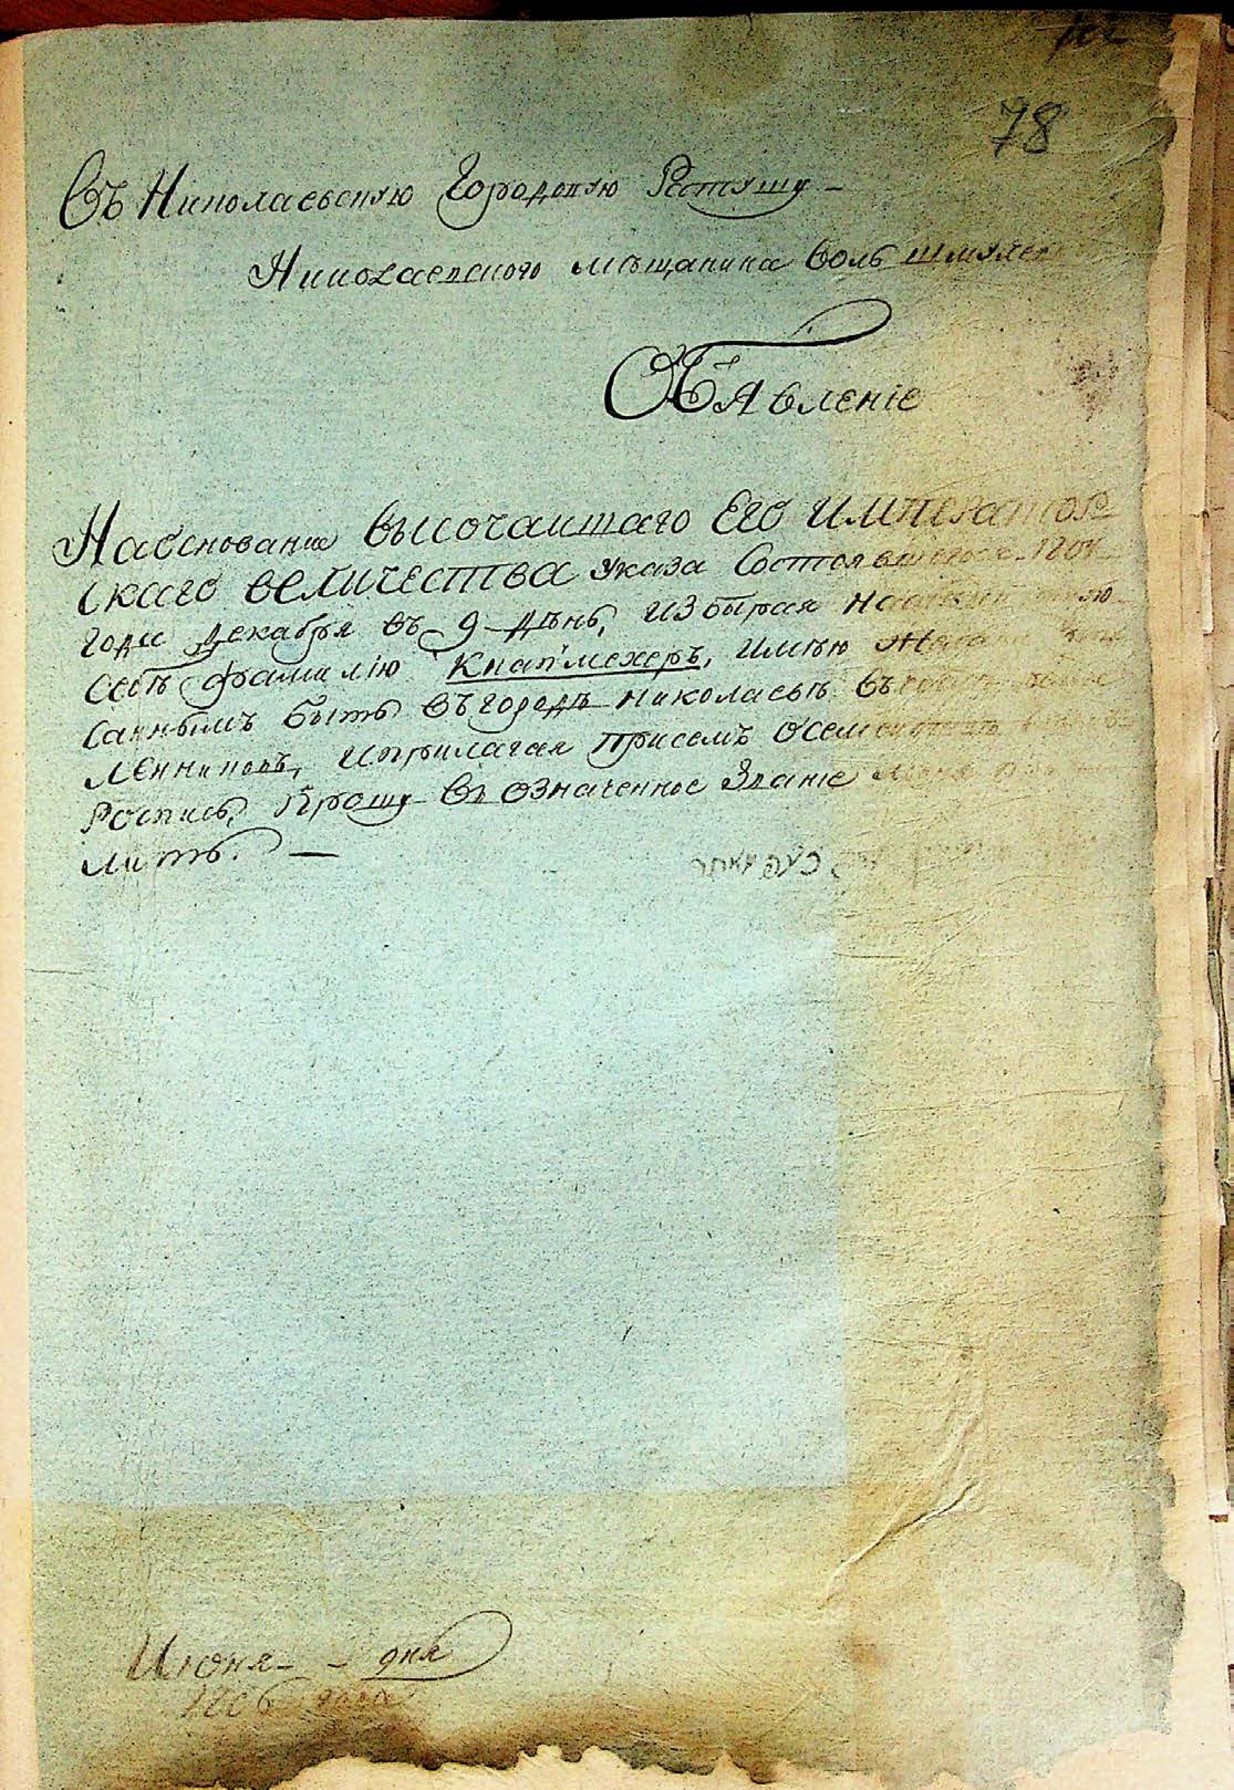 78
Въ Николаевскую Городскую Ратушу –
Николаевского мѣщанина Воль Шмулев
Объявленіе
На основание Высочаишаго Его Император
скаго величества указа Состоявшегося 1804
году Декабря въ 9 день, избирая
себѣ фамилію Кнапмехеръ, имѣю
саннымъ быть въ городѣ Николаевѣ въ
ленниковъ, и прилагая при семъ о семействѣ
Роспись, Прошу въ означенное Звание меня
лить. —
Июня – – дня
1806 года